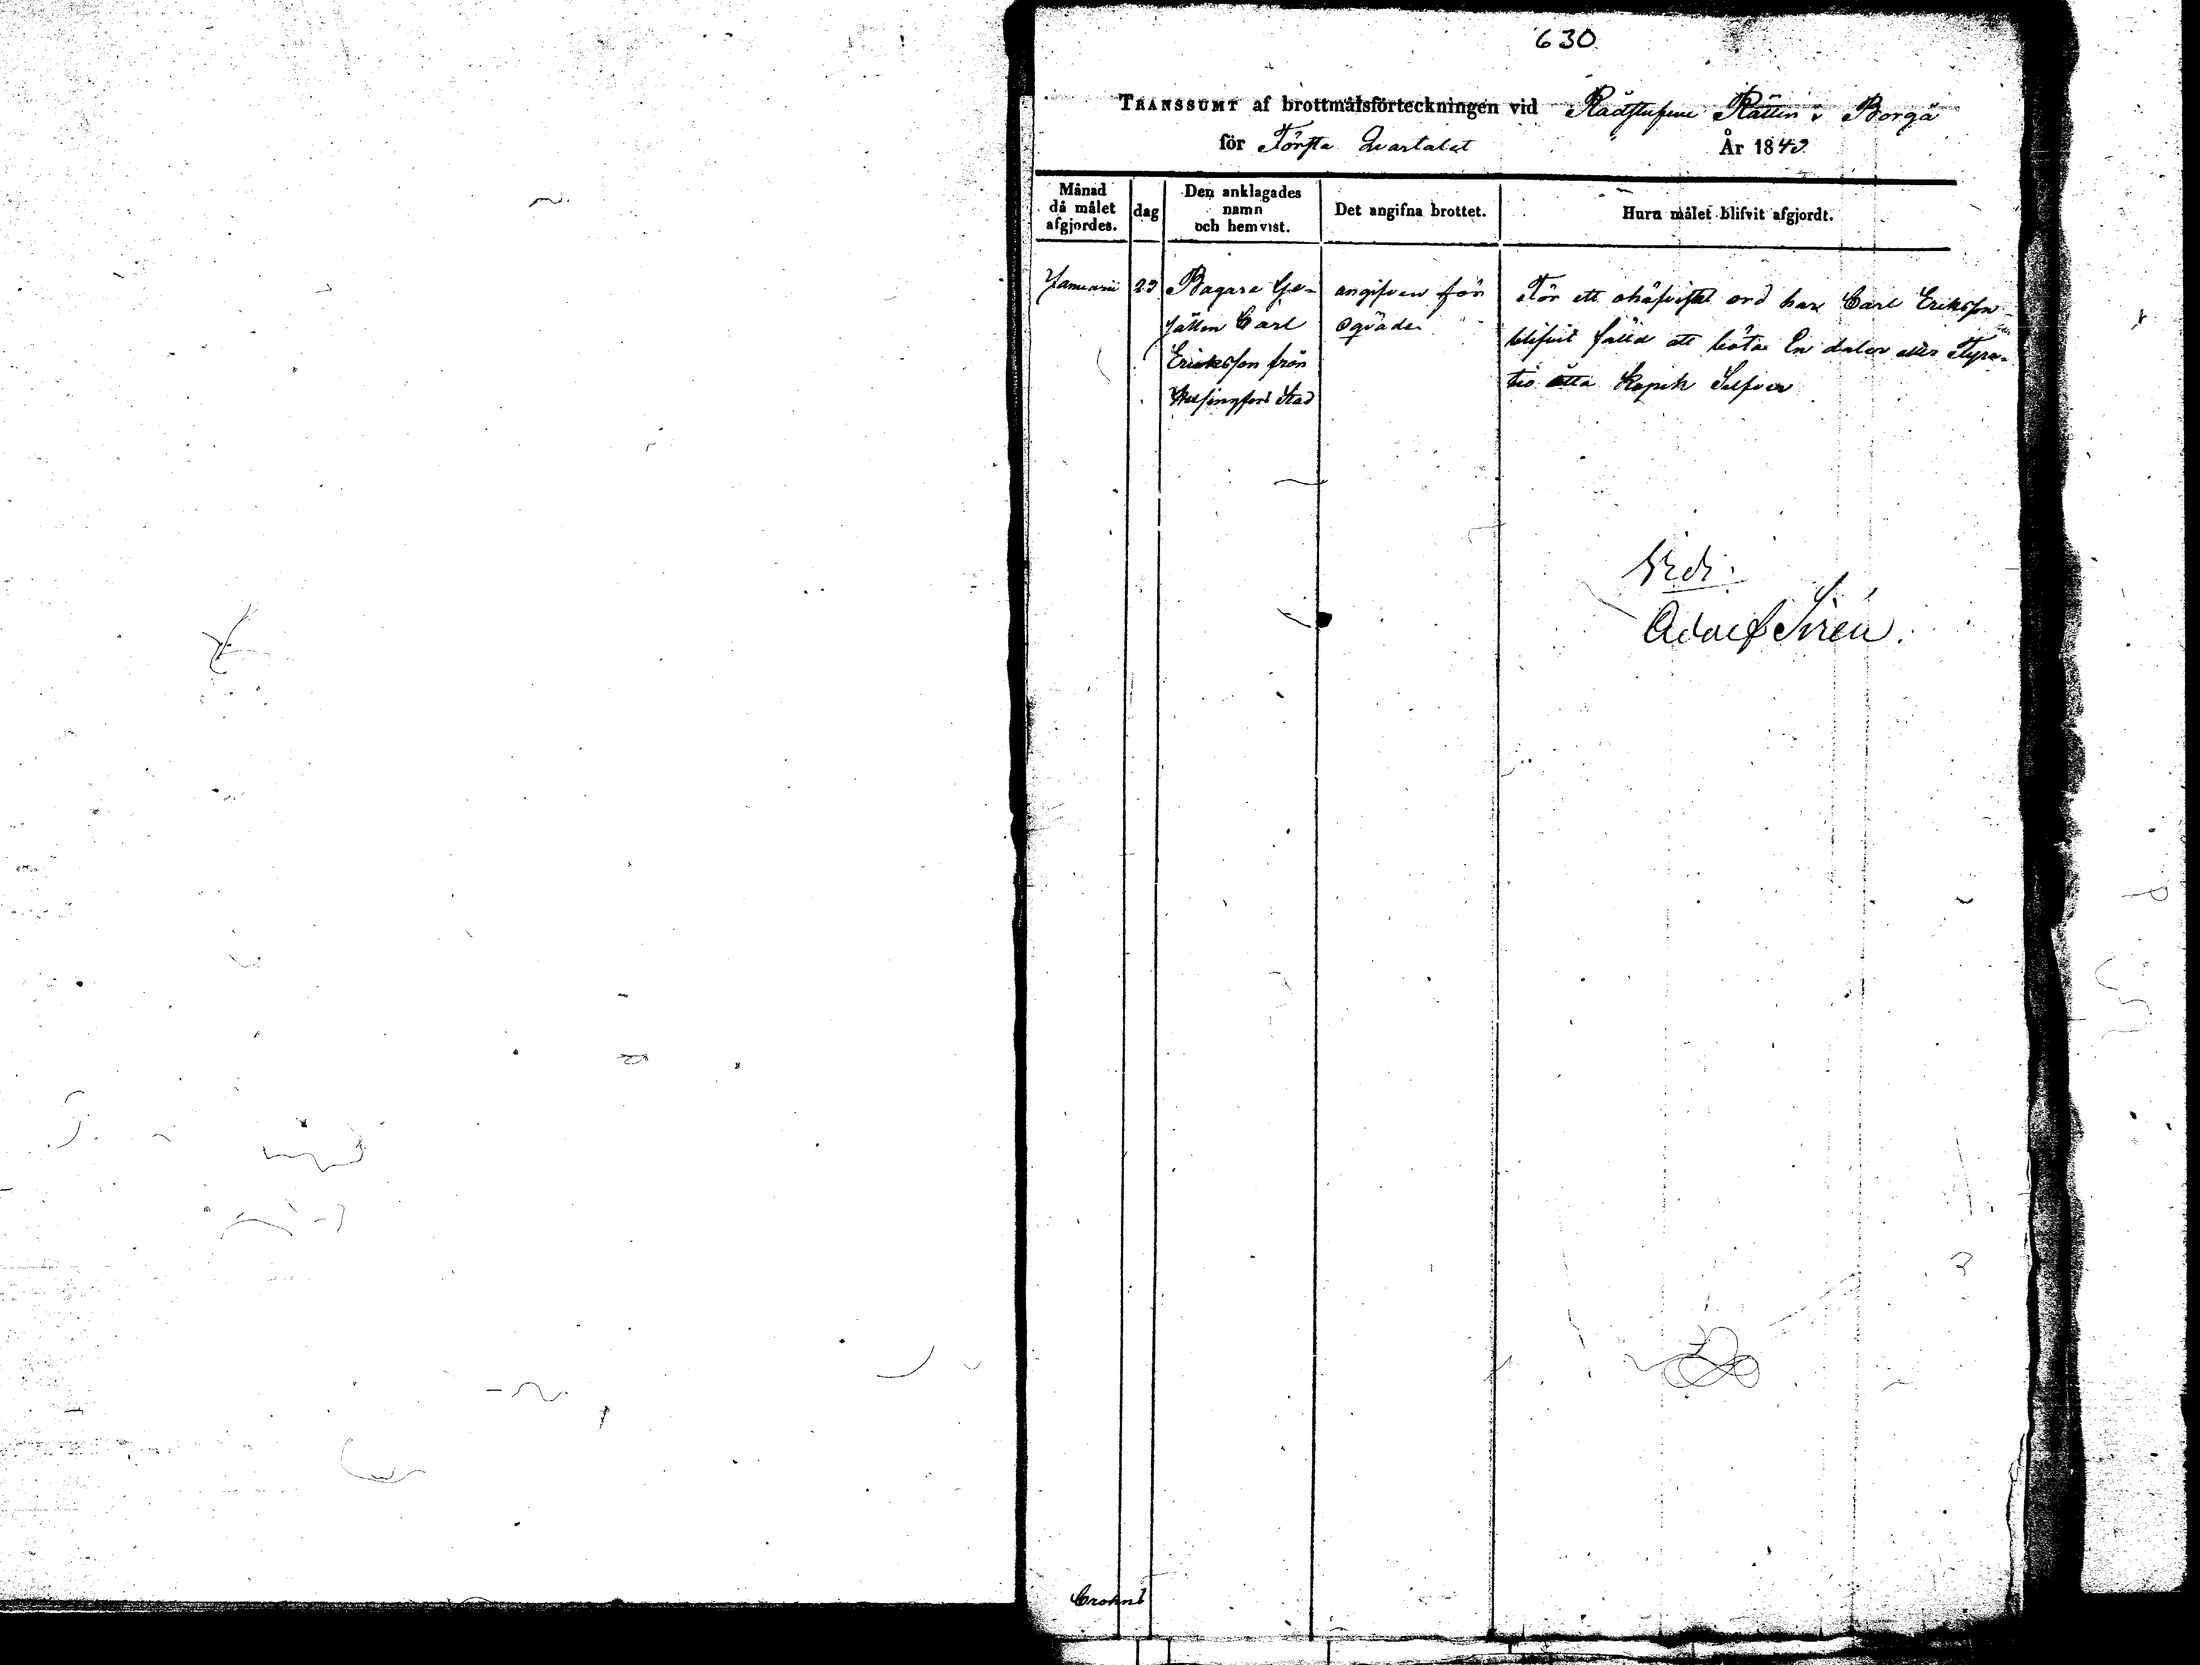 630
TRANSSUMT af brottmålsförteckningen vid Rådstufvu Rätten i Borgå
för Första Quartalet År 1843
Månad då målet afgjordes.
dag
Den anklagades namn och hemvist.
Det angifna brottet.
Huru målet blifvit afgjordt.
Januarii 23 Bagare Ge-
sällen Carl
Eriksson från
Helsingfors Stad
angifven för
oqväde.
För ett ohöfviskt ord har Carl Eriksson
blifvit fälld att böta En daler eller Fyra-
tio åtta Kopek Silfver
Vidi:
Adolf Sirén.
Crohns